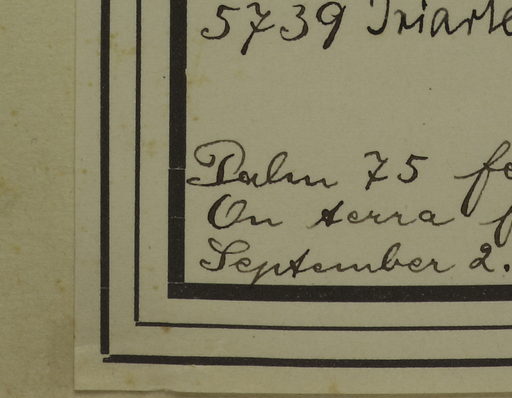 5739 Iriarte
Palm 75 fe
On terra f
September 2.